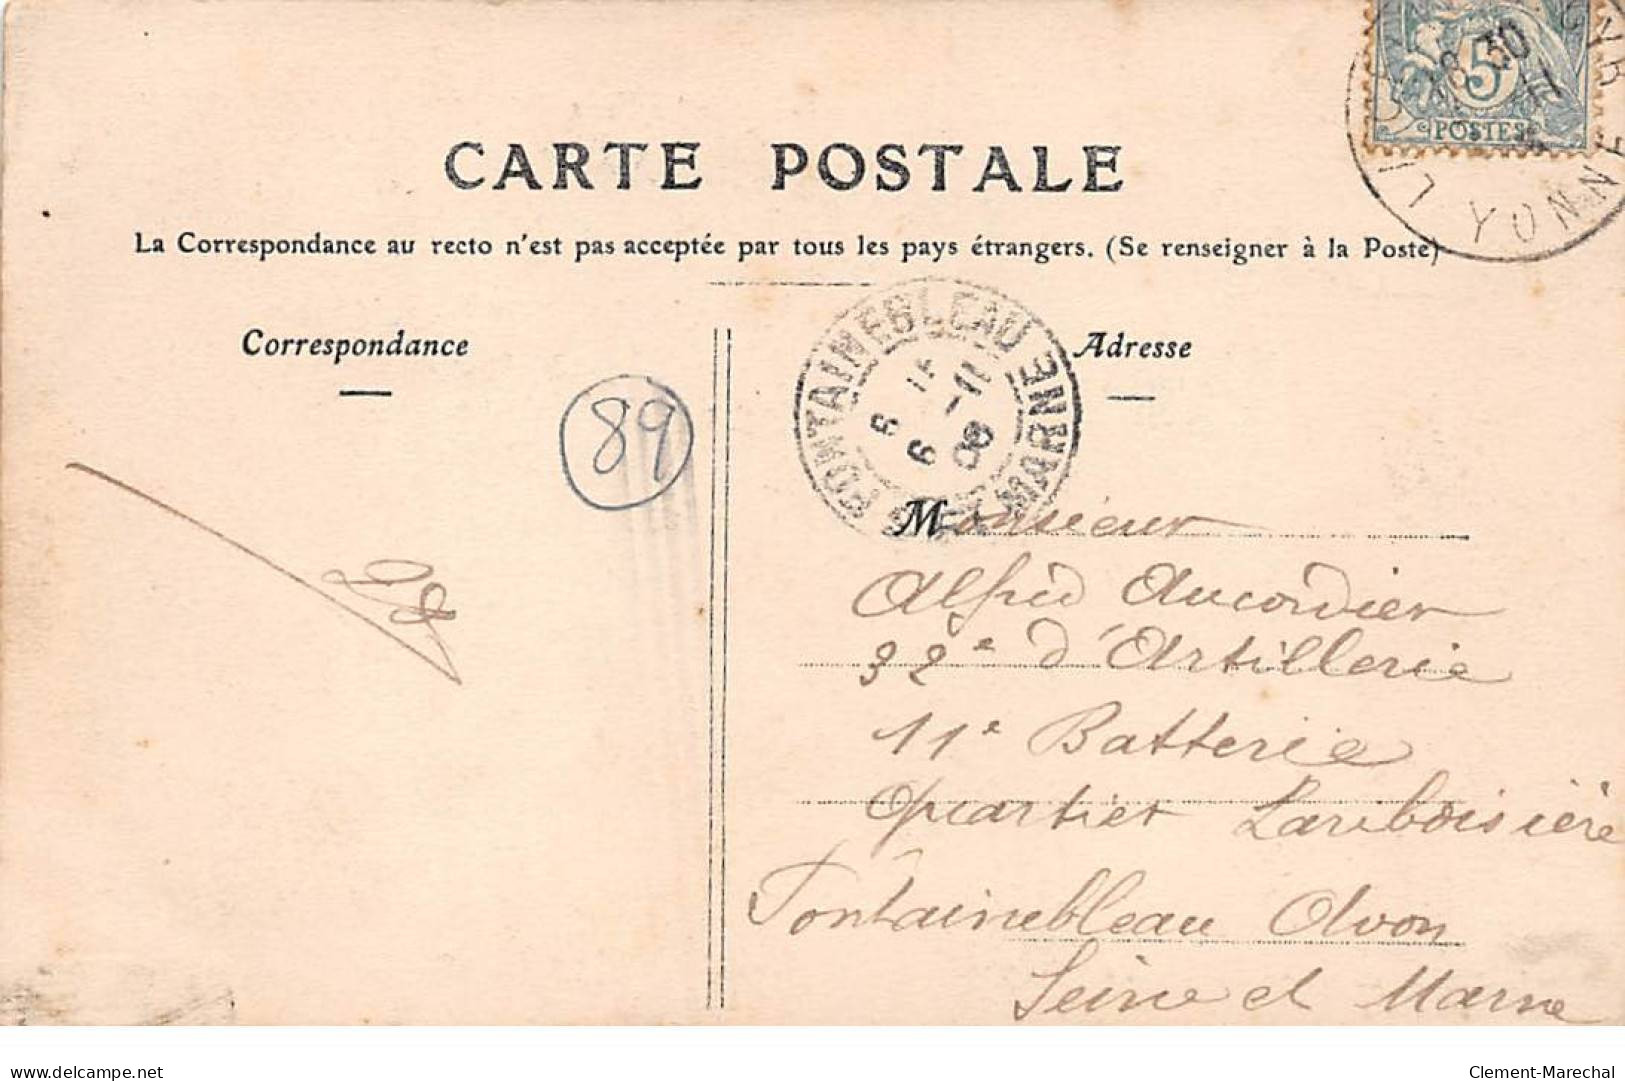 5
POSTES
30
YONNE
CARTE POSTALE
La Correspondance au recto n'est pas acceptée par tous les pays étrangers. (Se renseigner à la Poste)
FONTAINEBLEAU
6 -11
09
MARNE
Correspondance
Adresse
89
Monsieur
Alfred Aucordier
32e d'Artillerie
11e Batterie
Quartier Lariboisière
Fontainebleau Avon
Seine et Marne
www.delcampe.net
Clement-Marechal